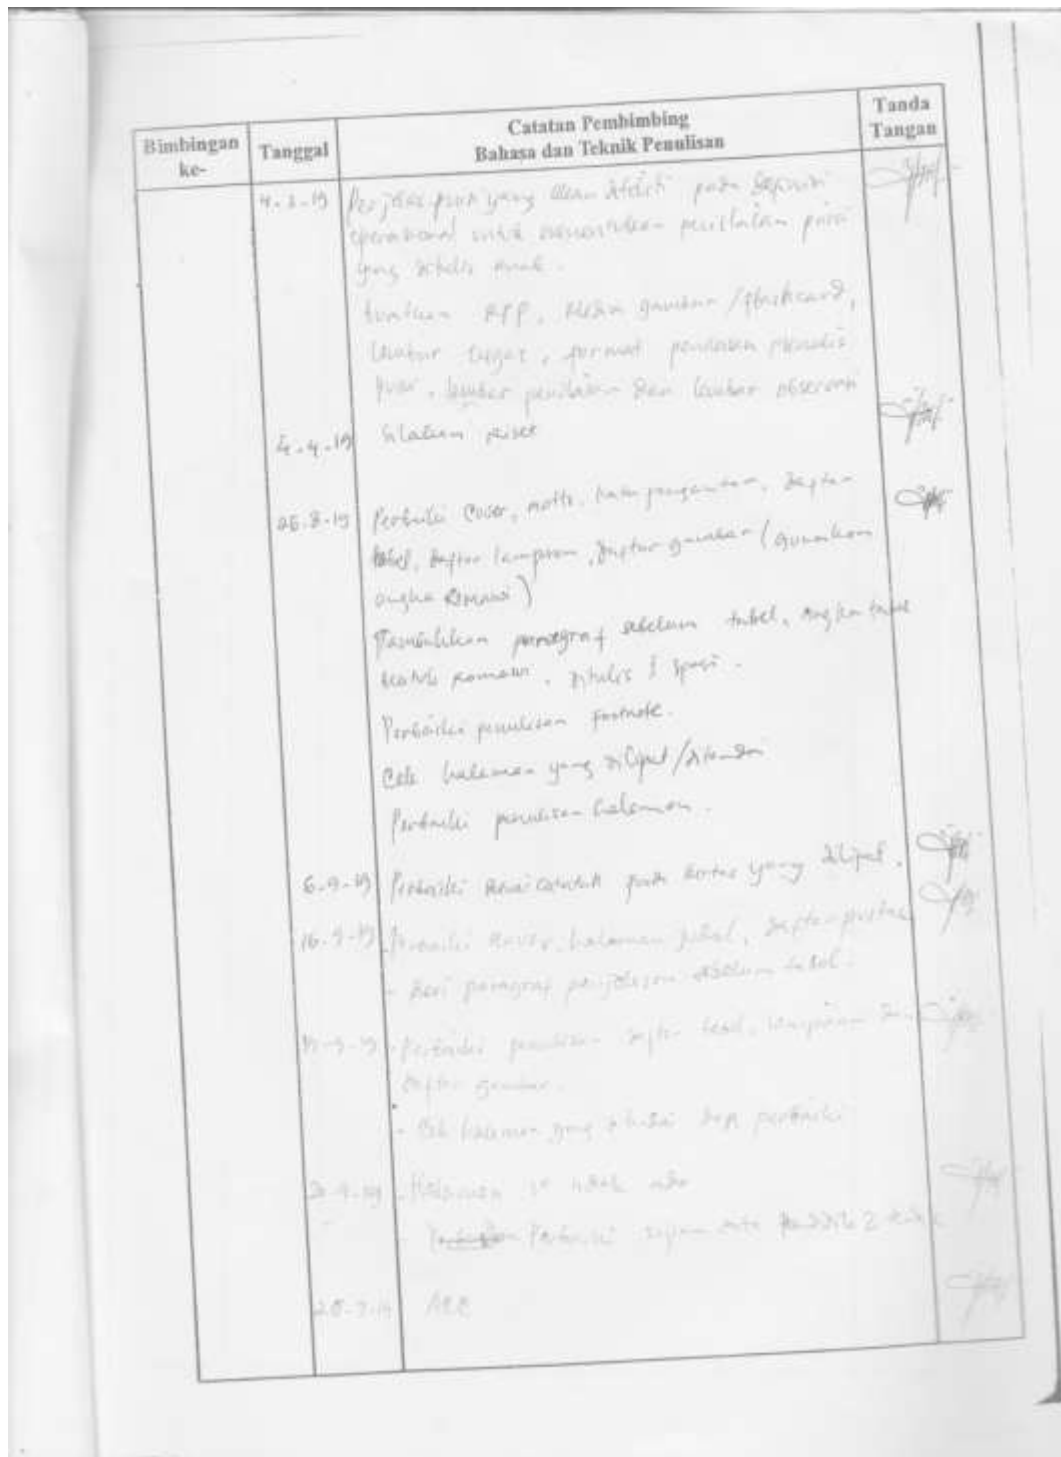 Bimbingan ke-
Tanggal
Catatan Pembimbing
Bahasa dan Teknik Penulisan
Tanda Tangan
Perjelas puisi yang akan diteliti pada Definisi
operasional untuk menentukan penilaian puisi
yang ditulis anak.
buatkan RPP, Media gambar / flashcard,
lembar tugas, format penilaian menulis
puisi, lembar penilaian dan lembar observasi
4-4-19 silakan riset
26-8-19 Perbaiki cover, motto, kata pengantar, daftar
tabel, daftar lampiran, daftar gambar (gunakan
angka Romawi)
Tambahkan paragraf sebelum tabel, angka tabel
romawi, ditulis 1 spasi.
Perbaiki penulisan footnote.
Cek halaman yang dilipat/ditandai
Perbaiki penulisan halaman.
6-9-19 Perbaiki sesuai catatan pada kertas yang dilipat.
16-9-19 Perbaiki cover, halaman judul, daftar pustaka
- Beri paragraf penjelasan sebelum tabel.
- Perbaiki penulisan daftar tabel, lampiran dan
daftar gambar.
- Cek halaman yang ditandai dan perbaiki
- Halaman tidak ada
Perbaiki
ACC